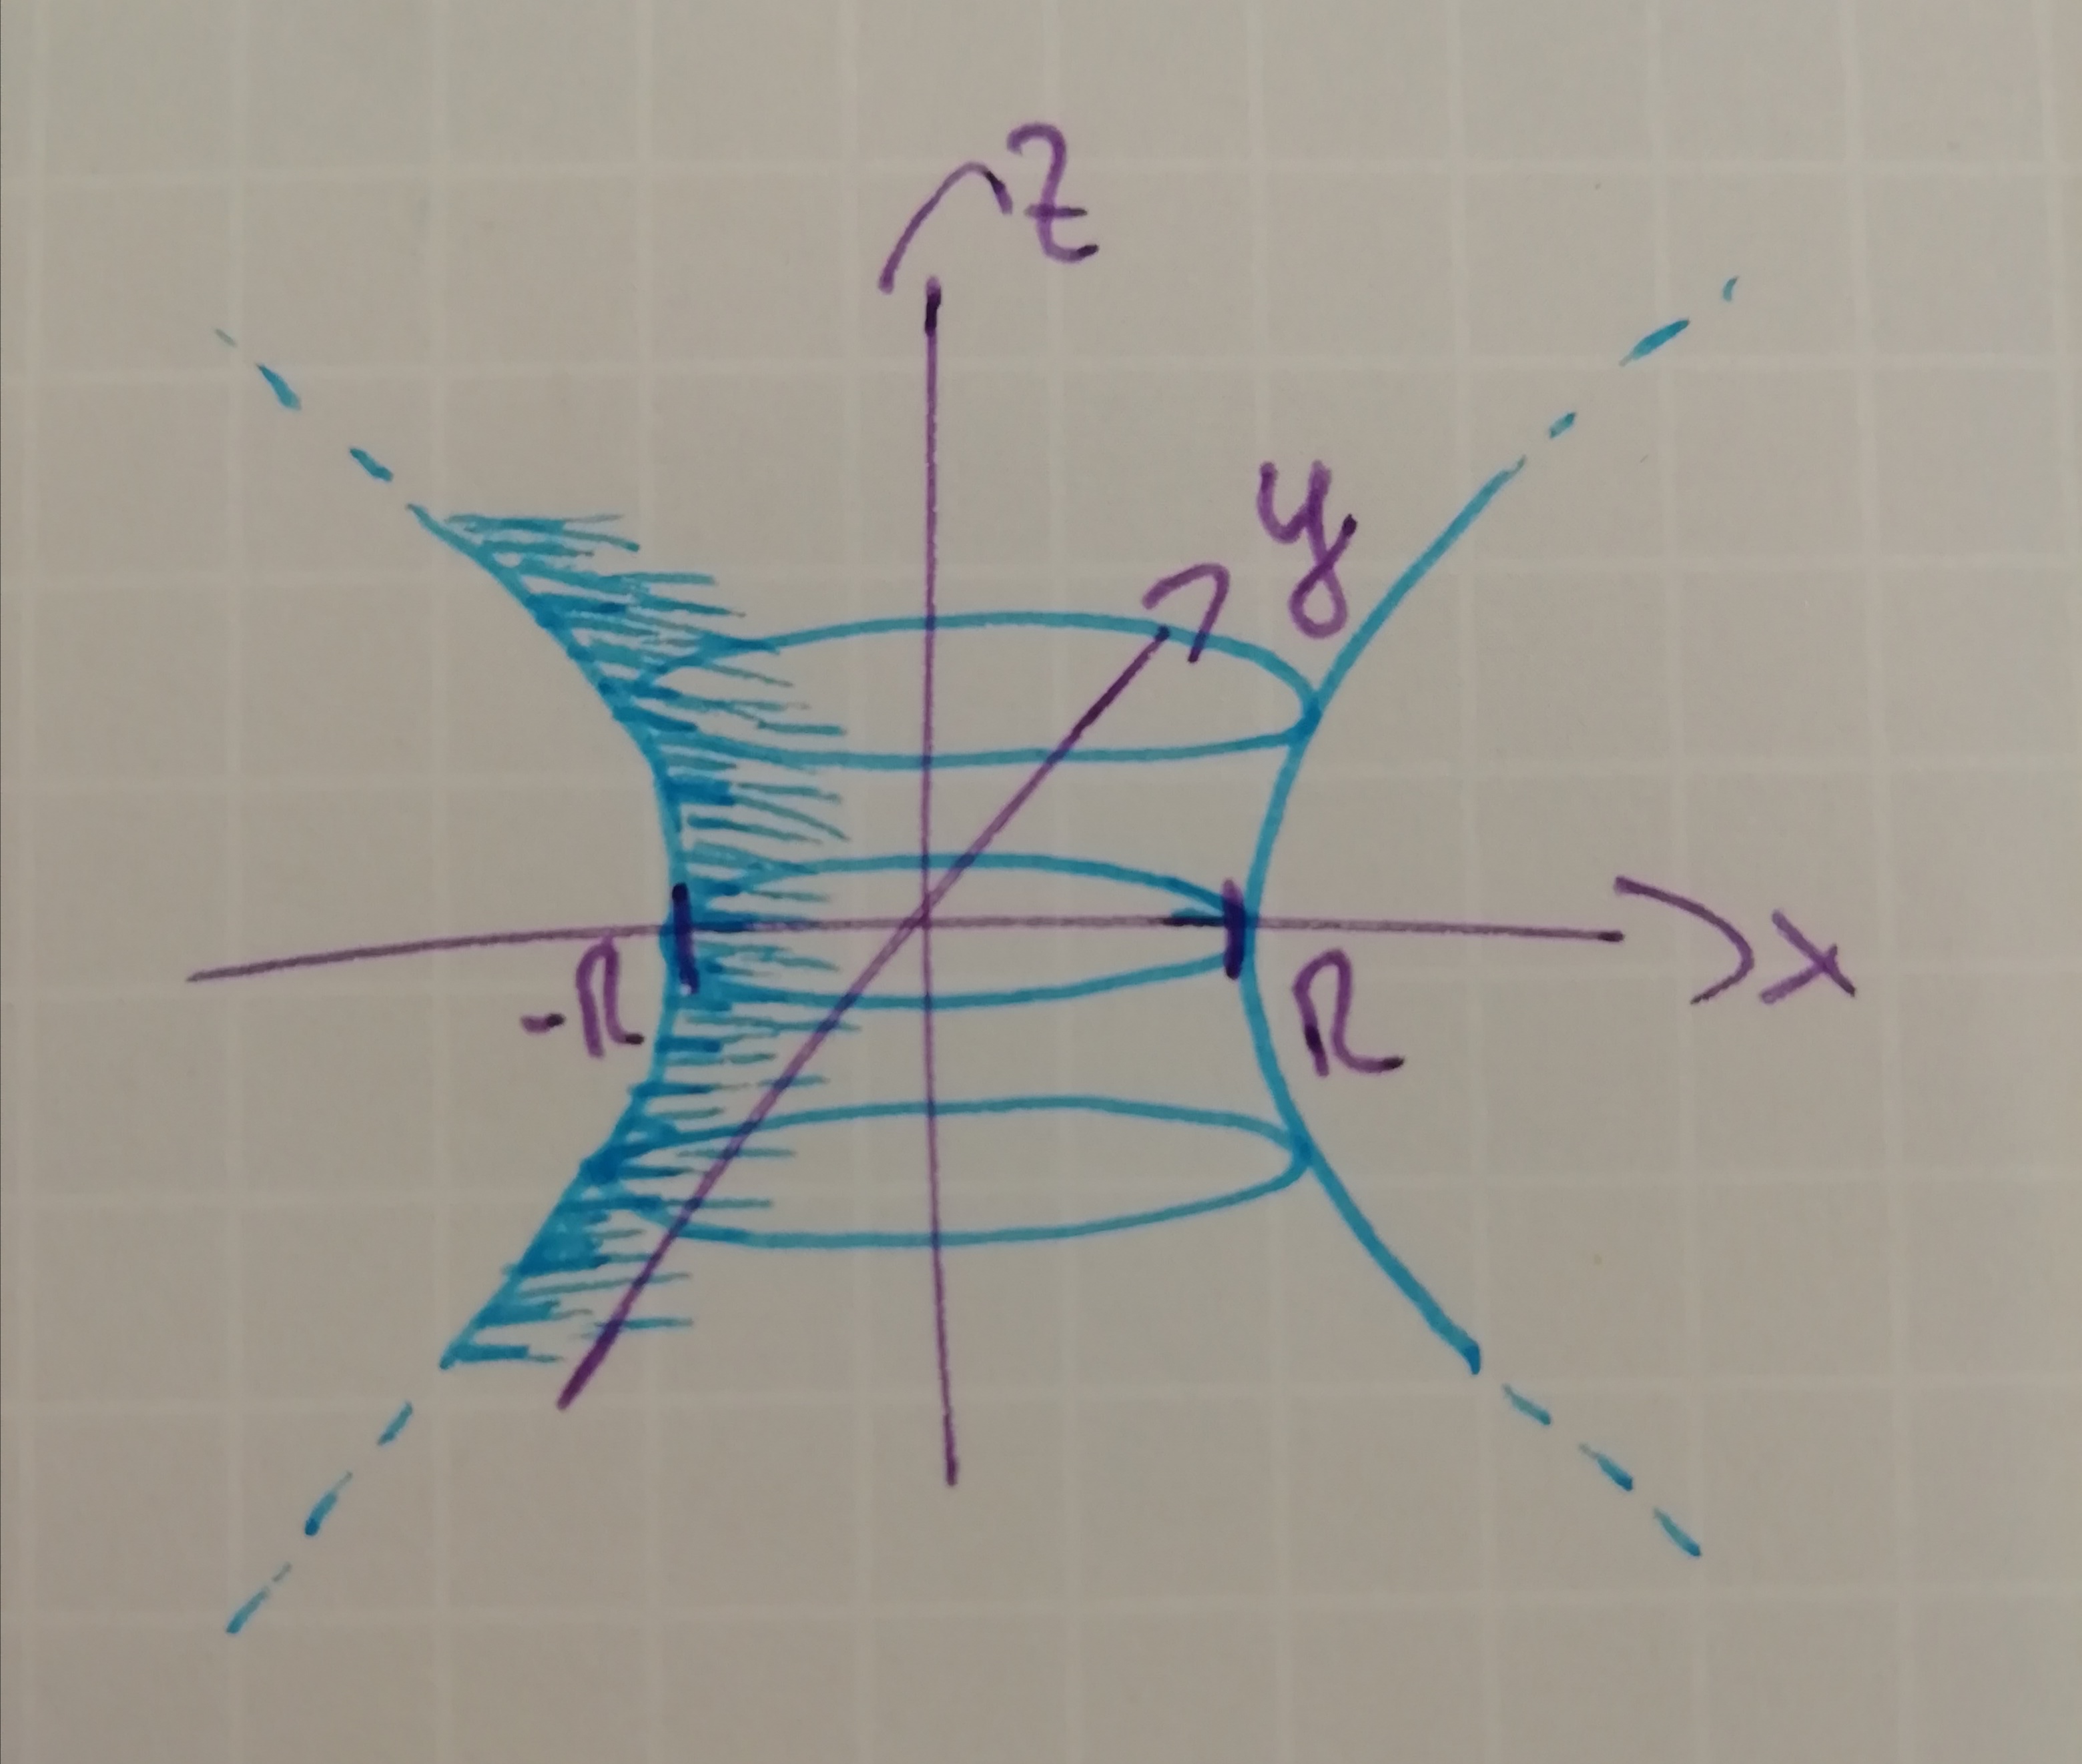 z
y
x
-R
R